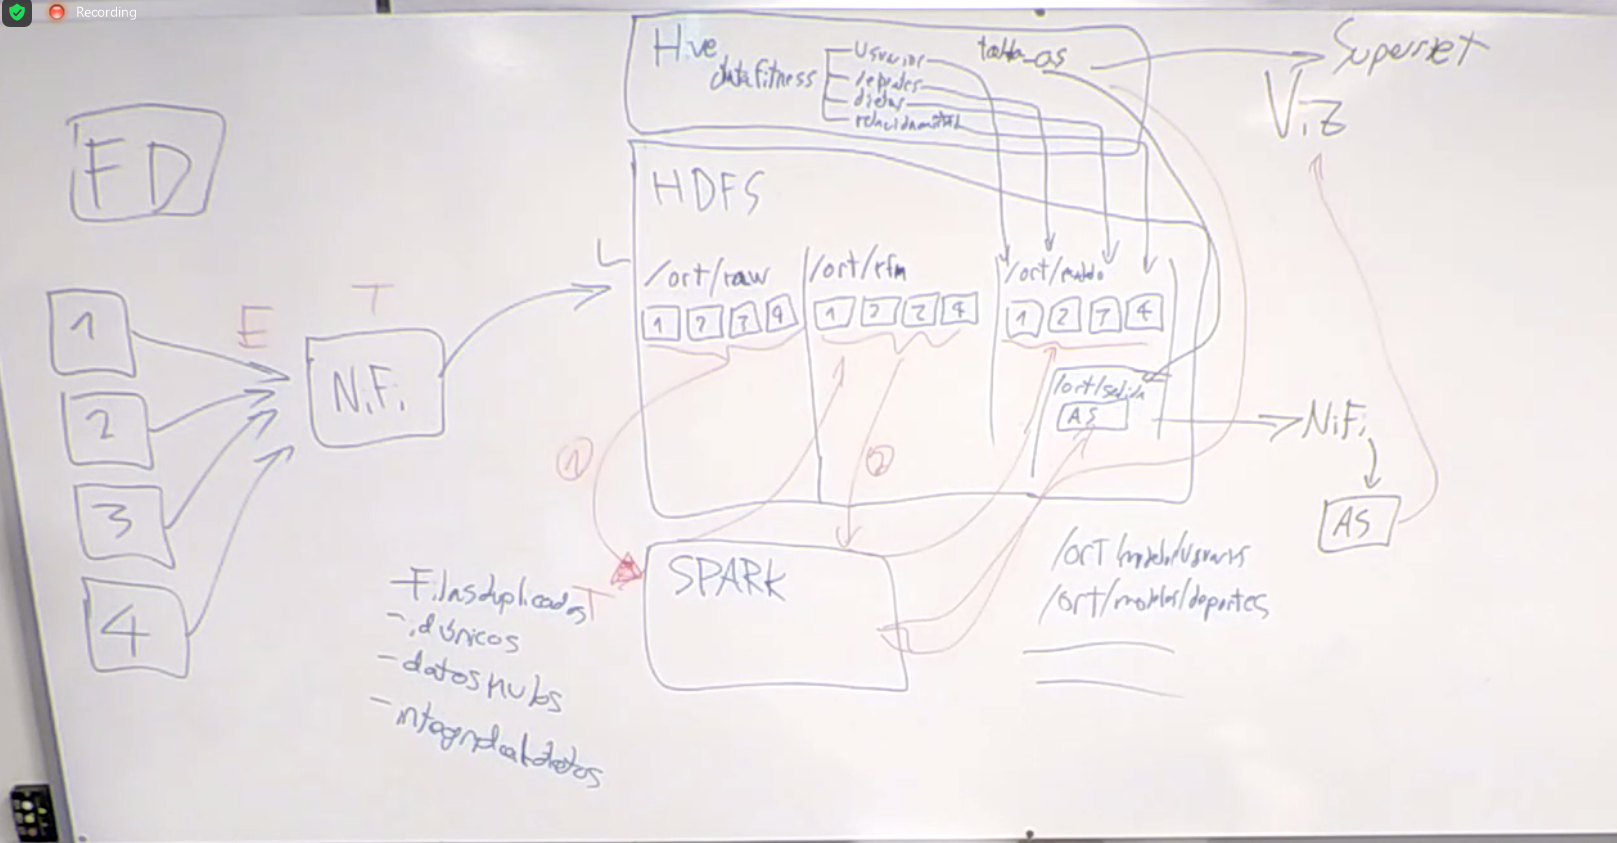 Recording
FD
1
2
3
4
E
T
NiFi
L
Hive
datafitness
Usuarios
deportes
dietas
tabla_as
Superset
Viz
HDFS
/ort/raw
1 2 3 4
/ort/rfm
1 2 3 4
/ort/
1 2 3 4
/ort/salida
AS
NiFi
AS
1
2
SPARK
T
- Filas duplicadas
- id únicos
- datos nulos
- integridad datos
/ort/modelo/usuarios
/ort/modelos/deportes